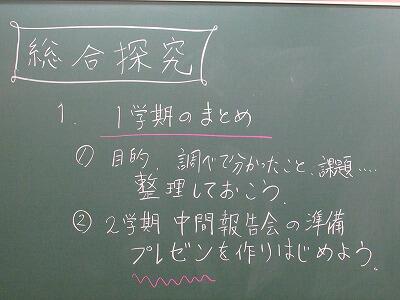 総合探究
1. 1学期のまとめ
① 目的、調べで分かったこと、課題‥‥
整理しておこう。
② 2学期 中間報告会の準備
プレゼンを作りはじめよう。